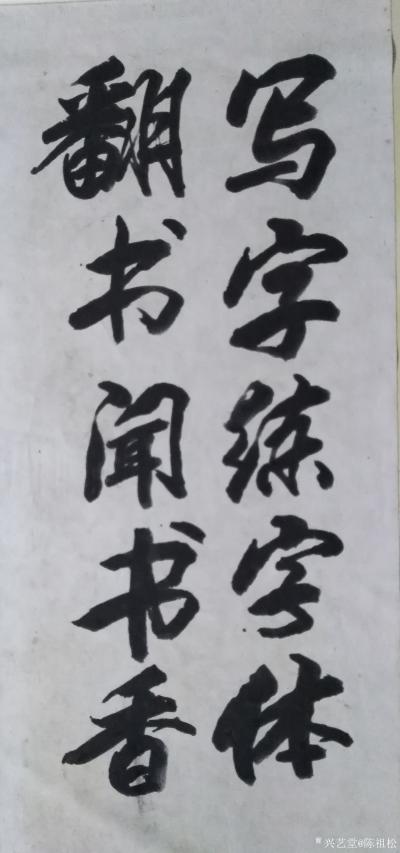 写字练字体
翻书闻书香
兴艺堂@陈祖松